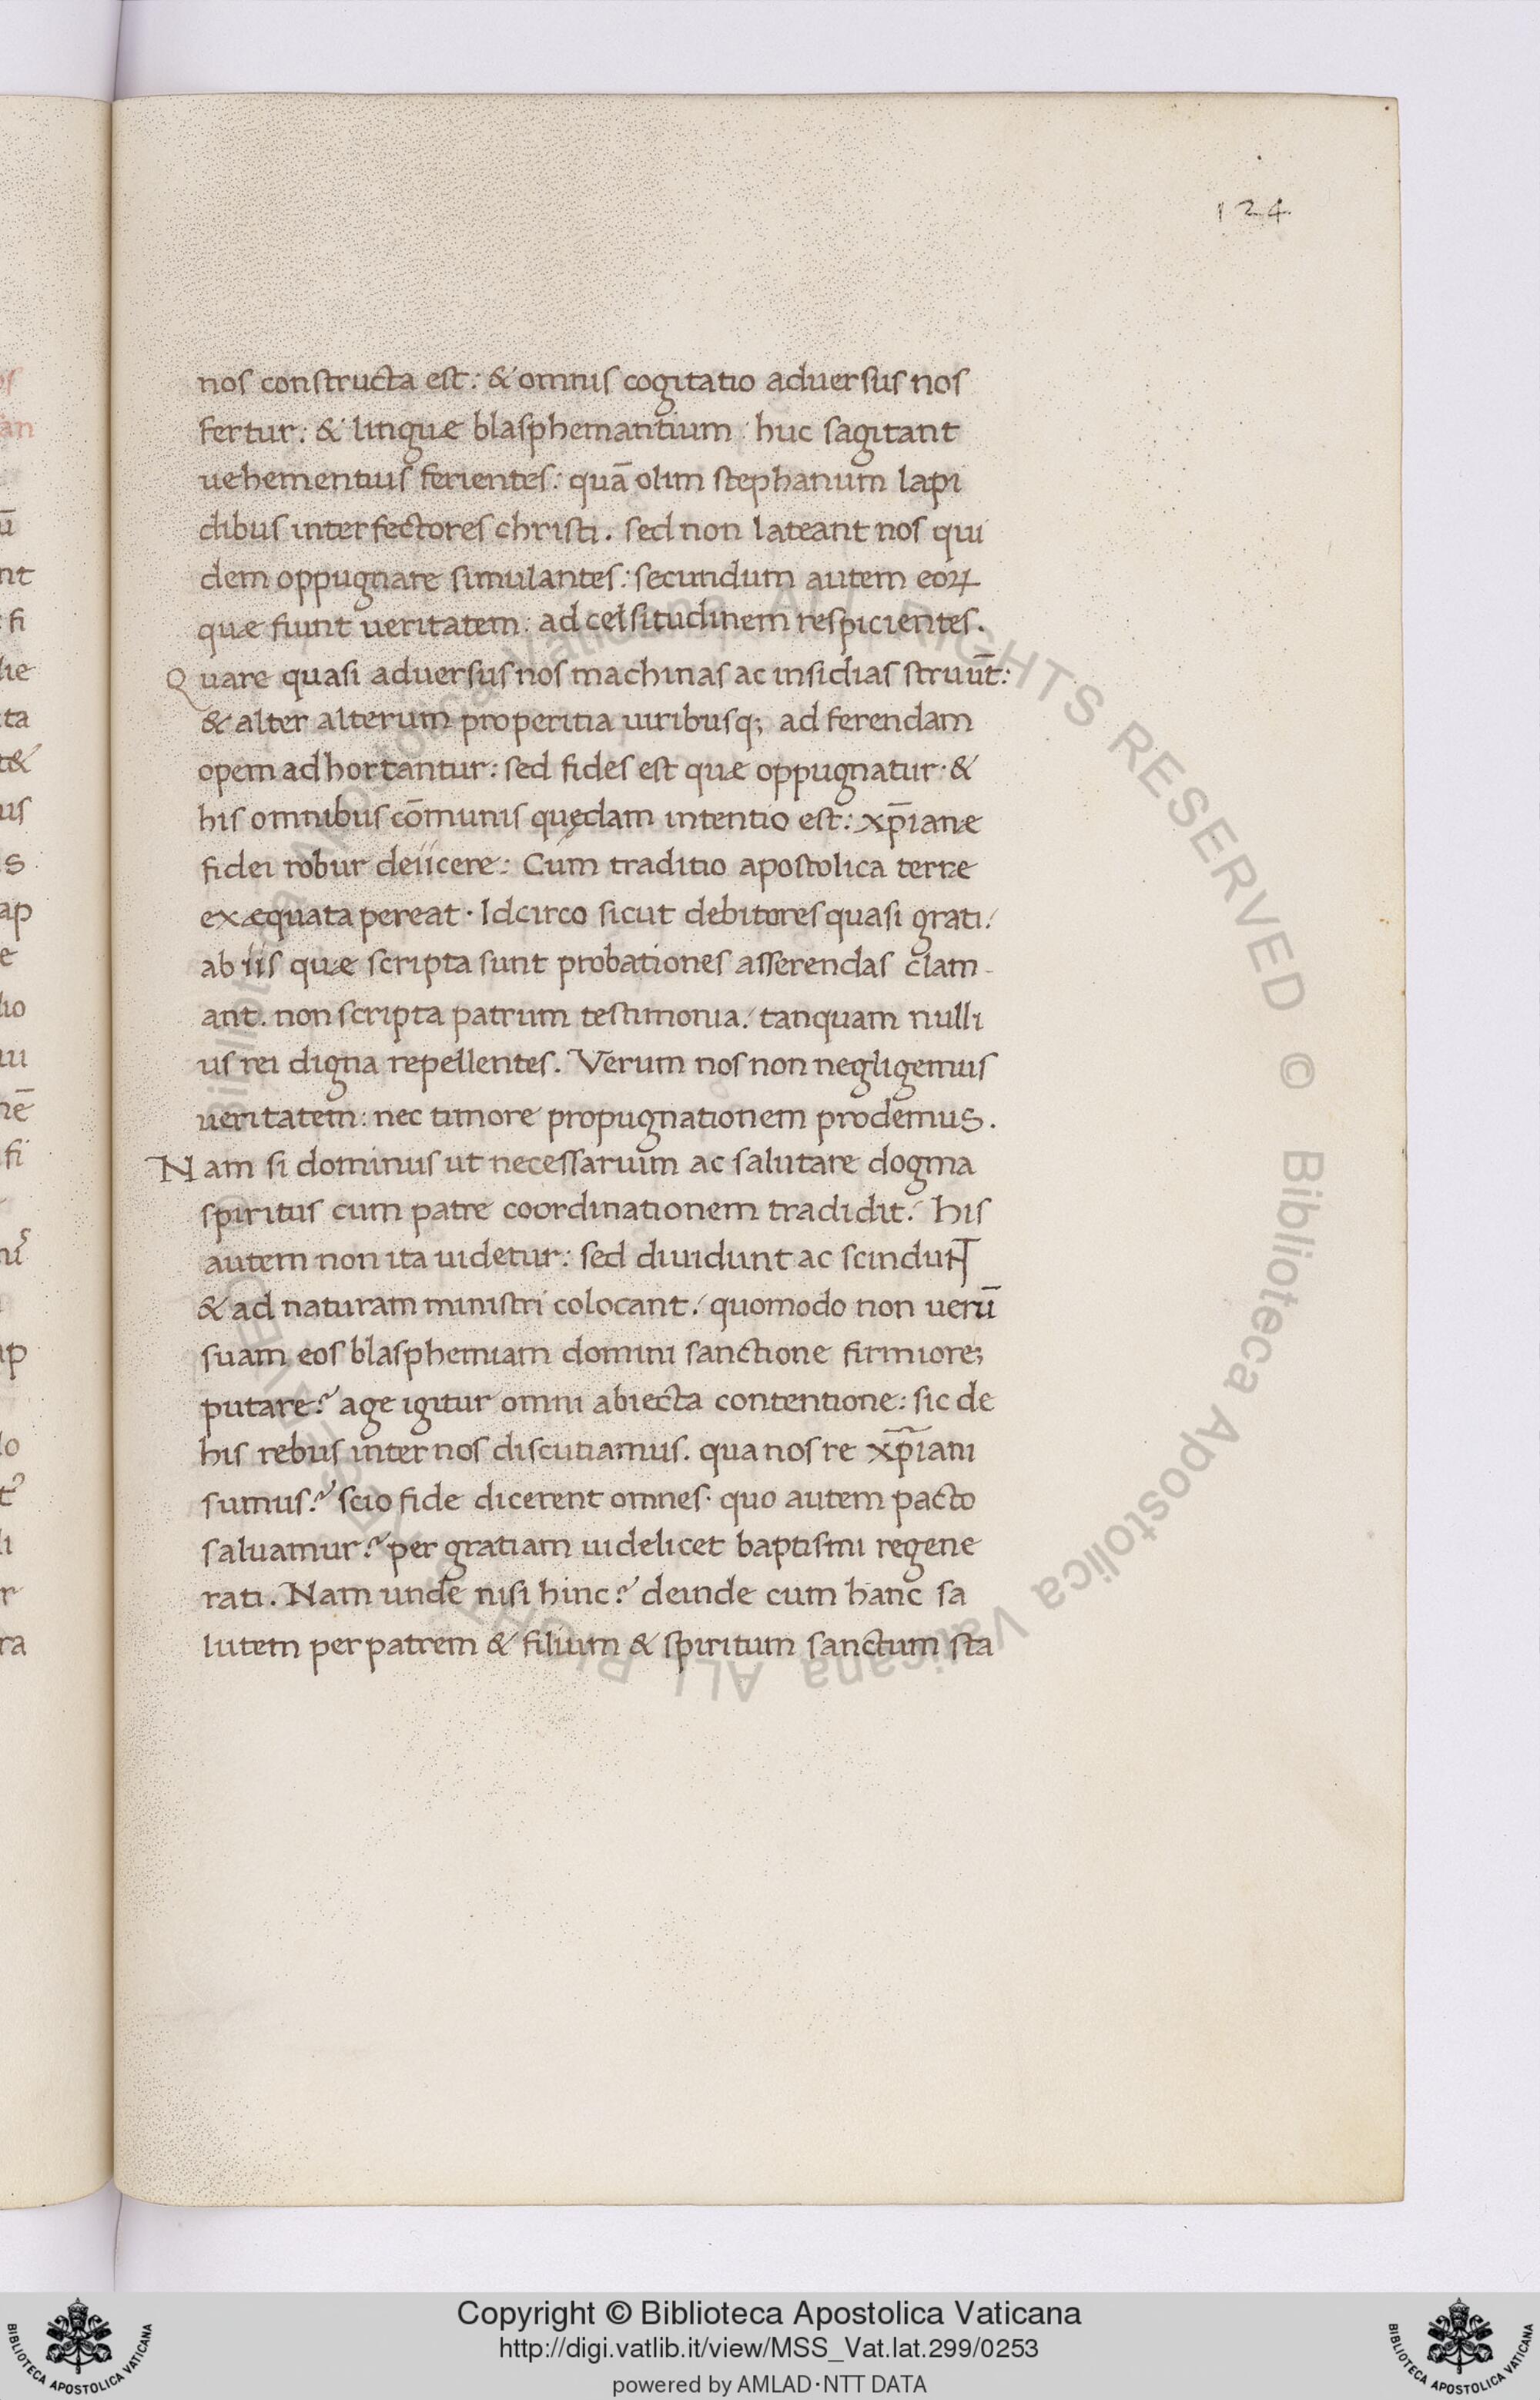 124
nos constructa est: & omnis cogitatio aduersus nos
fertur: & linguæ blasphemantium huc sagitant
uehementius ferientes: quā olim stephanum lapi
dibus interfectores christi. sed non lateant nos qui
dem oppugnare simulantes: secundum autem eoꝝ
quæ fiunt ueritatem: ad celsitudinem respicientes.
Quare quasi aduersus nos machinas ac insidias struūt:
& alter alterum pro peritia uiribusq; ad ferendam
opem adhortantur: sed fides est quæ oppugnatur· &
his omnibus cōmunis quędam intentio est: xp̄ianæ
fidei robur deiicere: Cum traditio apostolica terræ
exæquata pereat· Idcirco sicut debitores quasi grati/
ab iis quæ scripta sunt probationes asserendas clam-
ant. non scripta patrum testimonia/ tanquam nulli
us rei digna repellentes. Verum nos non negligemus
ueritatem: nec timore propugnationem prodemus.
Nam si dominus ut necessarium ac salutare dogma
spiritus cum patre coordinationem tradidit/ his
autem non ita uidetur: sed diuidunt ac scindunt
& ad naturam ministri colocant/ quomodo non uerū
suam eos blasphemiam domini sanctione firmiorē
putare? age igitur omni abiecta contentione: sic de
his rebus inter nos discutiamus. qua nos re xp̄iani
sumus? scio fide dicerent omnes· quo autem pacto
saluamur? per gratiam uidelicet baptismi regene
rati. Nam unde nisi hinc? deinde cum hanc sa
lutem per patrem & filium & spiritum sanctum sta
Copyright © Biblioteca Apostolica Vaticana
http://digi.vatlib.it/view/MSS_Vat.lat.299/0253
powered by AMLAD·NTT DATA